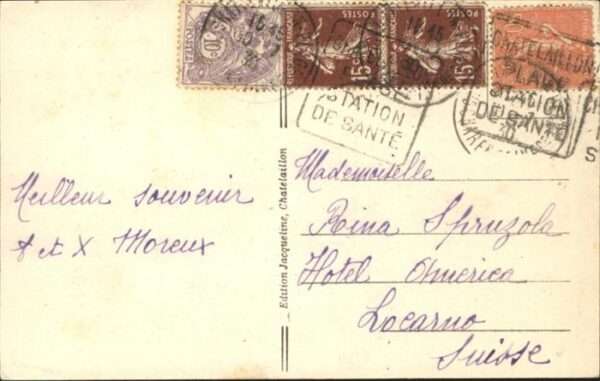 10c
POSTES
15c
POSTES
15c
CHATELAILLON
PLAGE
STATION
DE SANTÉ
STATION
DE SANTÉ
Meilleur souvenir
et X Moreux
Edition Jacqueline, Chatelaillon
Mademoiselle
Rina Spruzola
Hotel America
Locarno
Suisse